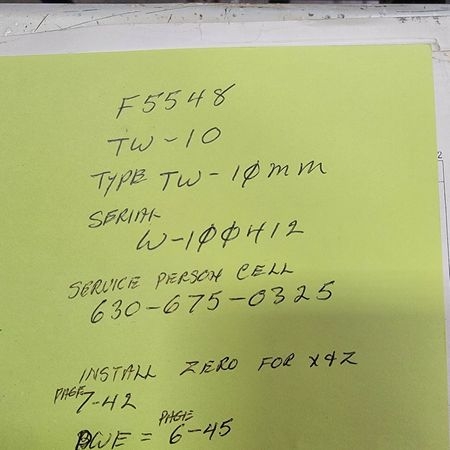 F5548
TW-10
TYPE TW-1ØMM
SERIAL
W-1ØØ412
SERVICE PERSON CELL
630-675-0325
INSTALL ZERO FOR X&Z
PAGE
7-42
PAGE
= 6-45
2